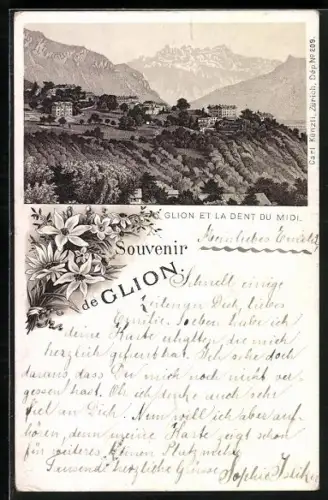 GLION ET LA DENT DU MIDI.
Carl Künzli, Zürich, Dép. Nº 809.
Souvenir
de GLION.
Schnell einige
Dich, liebes
Emilie. Soeben habe ich
deine Karte erhalten, die mich
herzlich gefreut hat. Ich sehe doch
daraus dass Du mich noch nicht ver-
gessen hast. Oh ich denke auch sehr
viel an Dich. Nun will ich aber auf-
hören, denn meine Karte zeigt schon
für weiteres keinen Platz mehr
Tausend herzliche Grüsse
Sophie